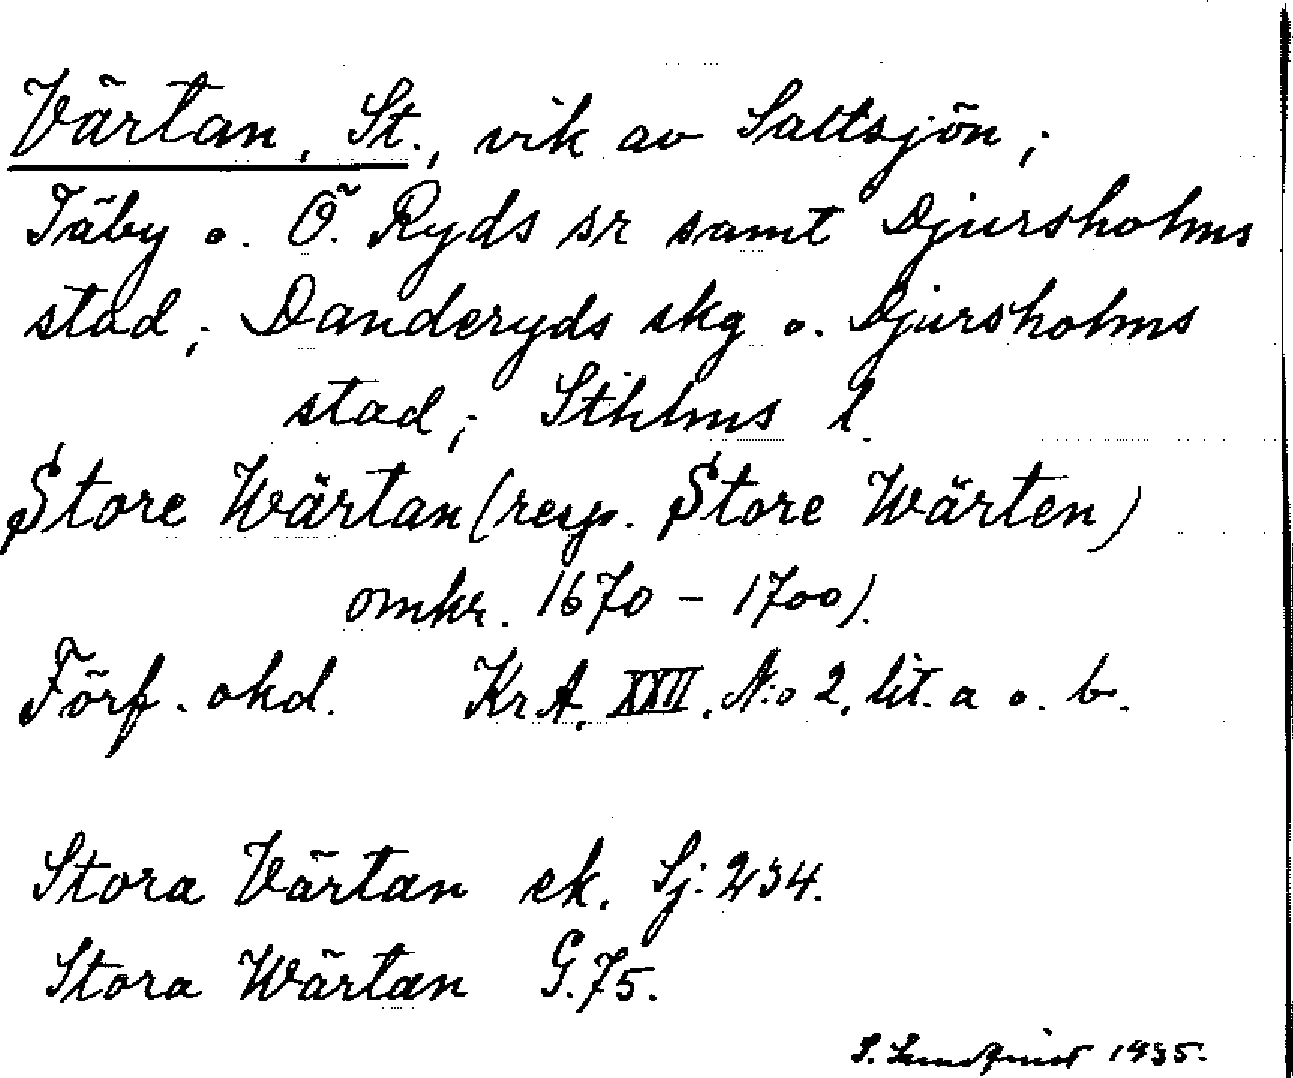 Värtan, St., vik av Saltsjön;
Täby o. Ö. Ryds sr samt Djursholms
stad; Danderyds skg o. Djursholms
stad; Sthlms l.
Store Wärtan (resp. Store Wärten)
omkr. 1670 - 1700).
Förf. okd. KrA. XXII. N:o 2. lit. a o. b.
Stora Värtan ek. Sj: 234.
Stora Wärtan G. 75.
S. Lundqvist 1935.